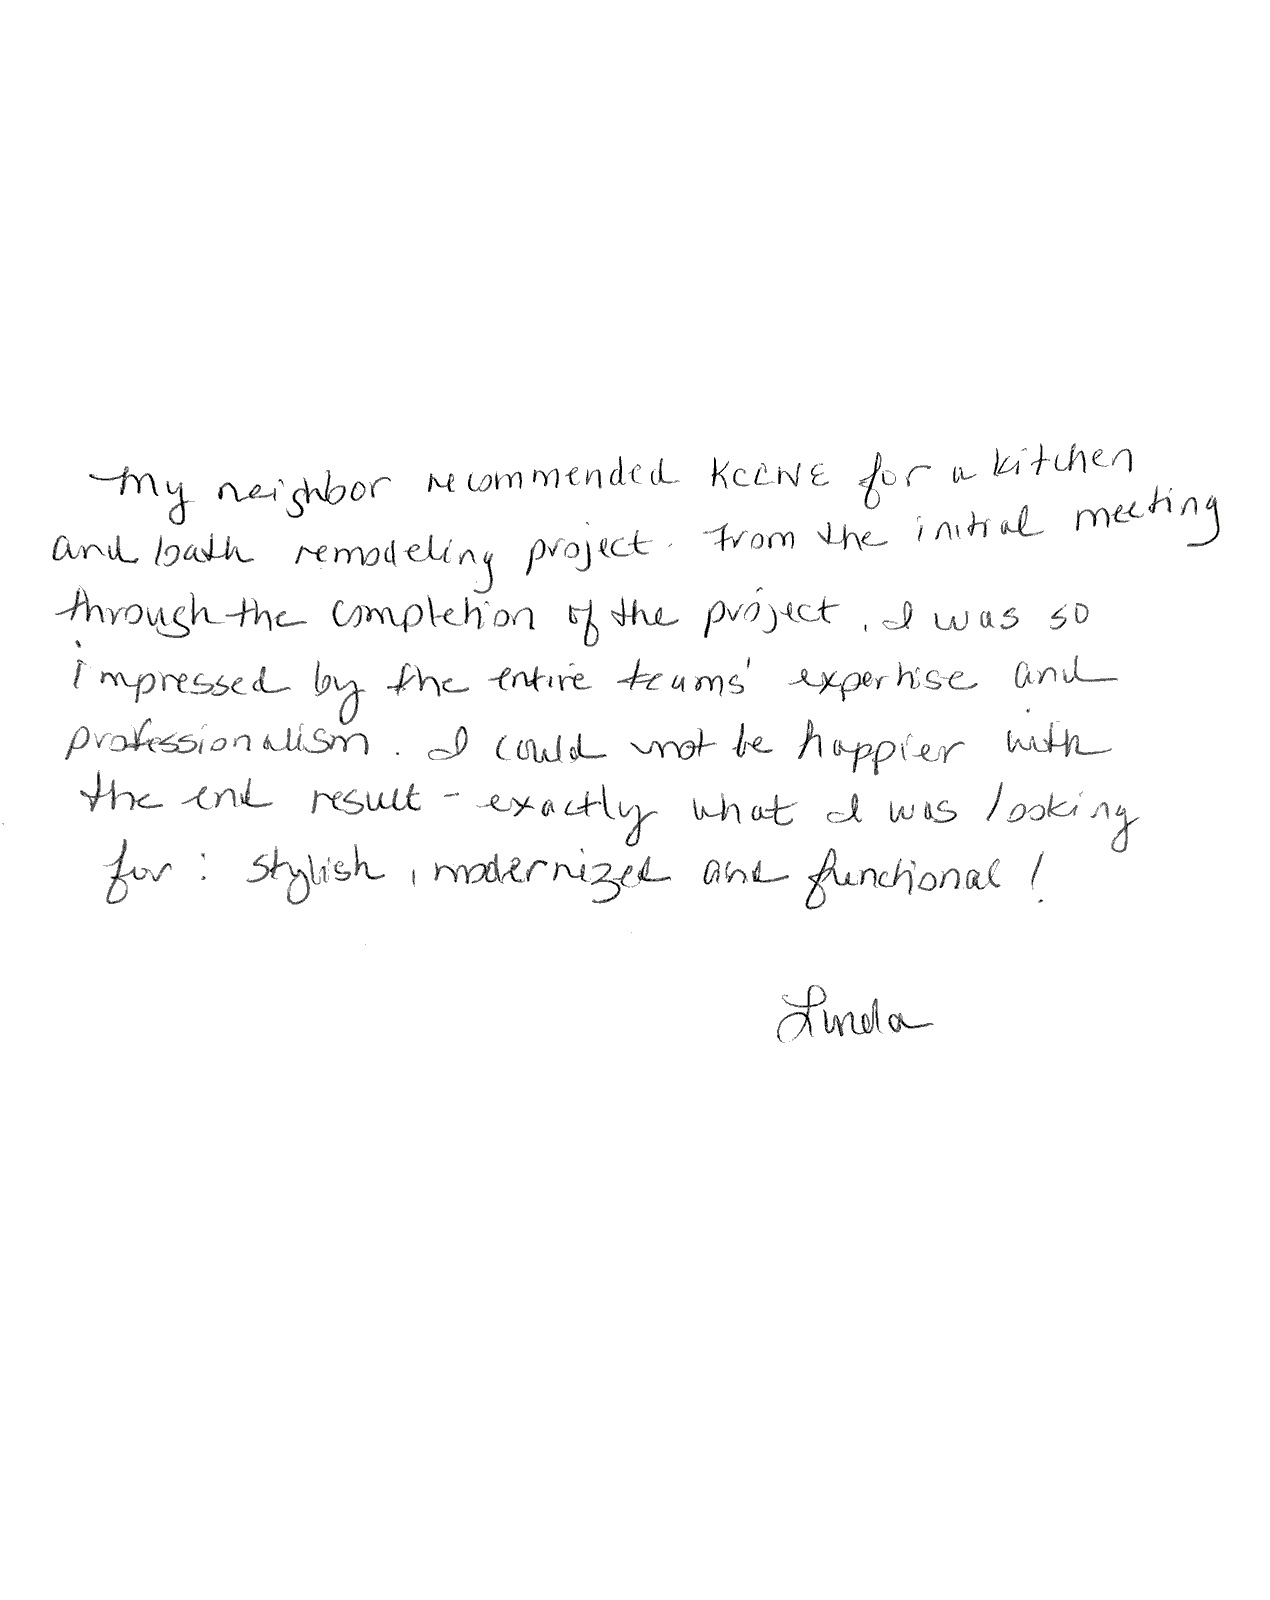 My neighbor recommended KCCNE for a kitchen
and bath remodeling project. From the initial meeting
through the completion of the project, I was so
impressed by the entire teams' expertise and
professionalism. I could not be happier with
the end result - exactly what I was looking
for: stylish, modernized and functional!
Linda